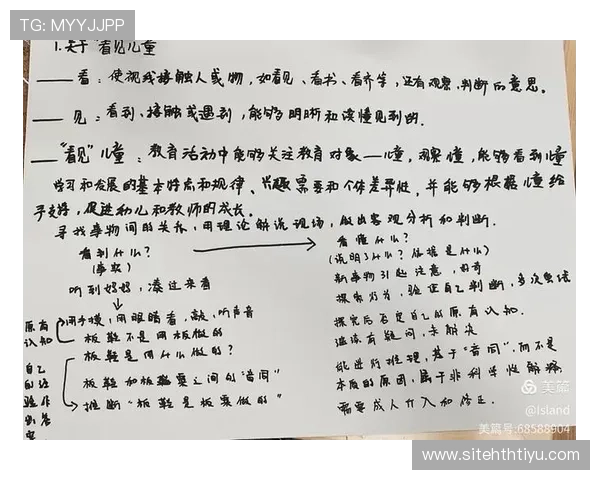 TG: MYYJJPP
1.关于"看见儿童
——看：使视线接触人或物，如看见、看书、看齐等，还有观察，判断的意思。
——见：看到、接触或遇到，能够明晰和读懂见到的.
——"看见"儿童：教育活动中能够关注教育对象—儿童，观察懂，能够看到儿童
学习和发展的基本特点和规律、兴趣需要和个体差异性，并能够根据儿童给
予支持，促进幼儿和教师的成长。
寻找事物间的关系，用理论解说现场，做出客观分析和判断.
看到什么？
(事实)
听到妈妈，凑过来看
原有认知
用手摸，用眼睛看，敲、听声音
板鞋不是用木板做的
板鞋是用什么做的？
自己的经验
板鞋和板栗之间的"音同"
推断"板鞋是板栗做的"
看懂什么？
(说明了什么？依据是什么)
新事物引起注意，好奇
探索行为，验证自己判断，多次尝试
探究后否定自己的原有认知.
继续有疑问，未解决
能进行推理，基于"音同"，而不是
本质的原因，属于非科学性解释
需要成人介入和修正.
美篇
@Island
美篇号:68588904
www.sitehthtiyu.com